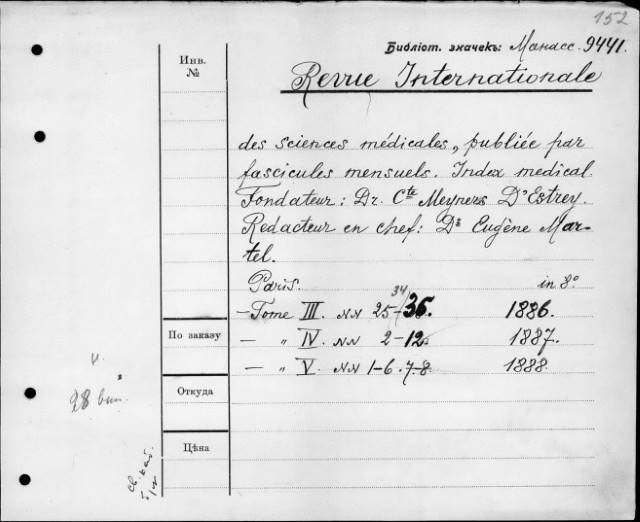 152
Библіот. значекъ: Манасс. 9441.
Инв.
№
Revue Internationale
des sciences médicales, publiée par
fascicules mensuels. Index medical.
Fondateur: Dr. Cte Meyners D'Estrey.
Redacteur en chef: Dr Eugène Mar-
tel.
Paris. in 8º
34
— Tome III. NN 25-36. 1886.
По заказу
— „ IV. NN 2-12. 1887.
— „ V. NN 1-6. 7-8. 1888.
Откуда
28 вып.
Цѣна